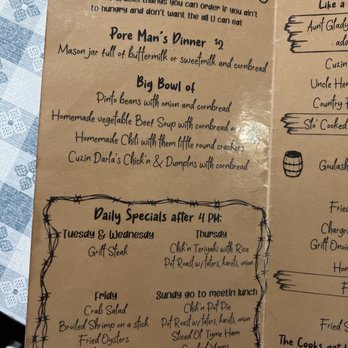 thangs you can order if you ain't
to hungry and don't want the all U can eat
Pore Man's Dinner $2
Mason jar full of buttermilk or sweetmilk and cornbread
Big Bowl of
Pinto beans with onion and cornbread
Homemade vegetable Beef Soup with cornbread
Homemade Chili with them little round crackers
Cuzin Darla's Chick'n & Dumplns with cornbread
Daily Specials after 4 PM:
Tuesday & Wednesday
Griff Steak
Thursday
Chik'n Teriyaki with Rice
Pot Roast w/taters, karots, onion
Friday
Crab Salad
Broiled Shrimp on a stick
Fried Oysters
Sunday go to meetin lunch
Chik'n Pot Pie
Pot Roast w/taters, karots, onion
Sliced Ol' Tyme Ham
Like a
Aunt Glady
Cuzin
Uncle Hen
Country
Slo' Cooked
Goulash
Fried
Chargr
Grill Onio
Home
Fried S
The Cooks got